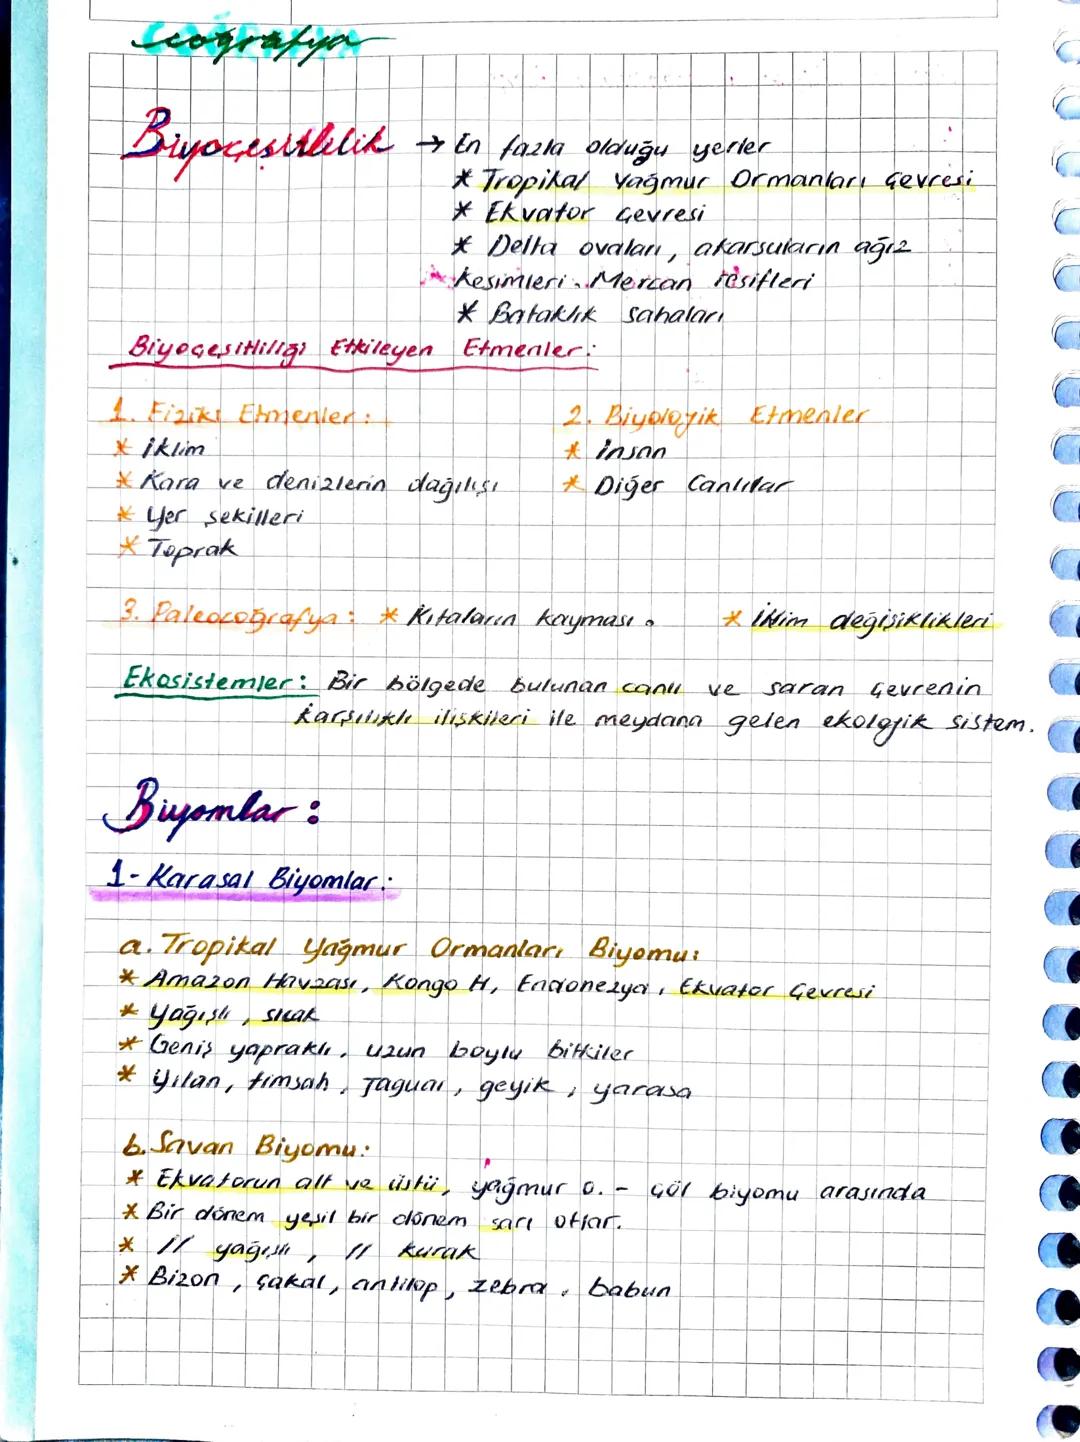 Coğrafya
Biyoçeşitlilik → En fazla olduğu yerler
* Tropikal Yağmur Ormanları çevresi
* Ekvator çevresi
* Delta ovaları, akarsuların ağız
kesimleri. Mercan resifleri
* Bataklık sahaları
Biyoçeşitliliği Etkileyen Etmenler:
1. Fiziki Etmenler: 2. Biyolojik Etmenler
* İklim * İnsan
* Kara ve denizlerin dağılışı * Diğer Canlılar
* Yer şekilleri
* Toprak
3. Paleocoğrafya: * Kıtaların kayması. * İklim değişiklikleri
Ekosistemler: Bir bölgede bulunan canlı ve saran çevrenin
karşılıklı ilişkileri ile meydana gelen ekolojik sistem.
Biyomlar:
1- Karasal Biyomlar:
a. Tropikal Yağmur Ormanları Biyomu:
* Amazon Havzası, Kongo H, Endonezya, Ekvator Çevresi
* Yağışlı, sıcak
* Geniş yapraklı, uzun boylu bitkiler
* Yılan, timsah, Jaguar, geyik, yarasa
b. Savan Biyomu:
* Ekvatorun alt ve üstü, yağmur o. - çöl biyomu arasında
* Bir dönem yeşil bir dönem sarı otlar.
* // yağışlı, // kurak
* Bizon, çakal, antilop, zebra, babun